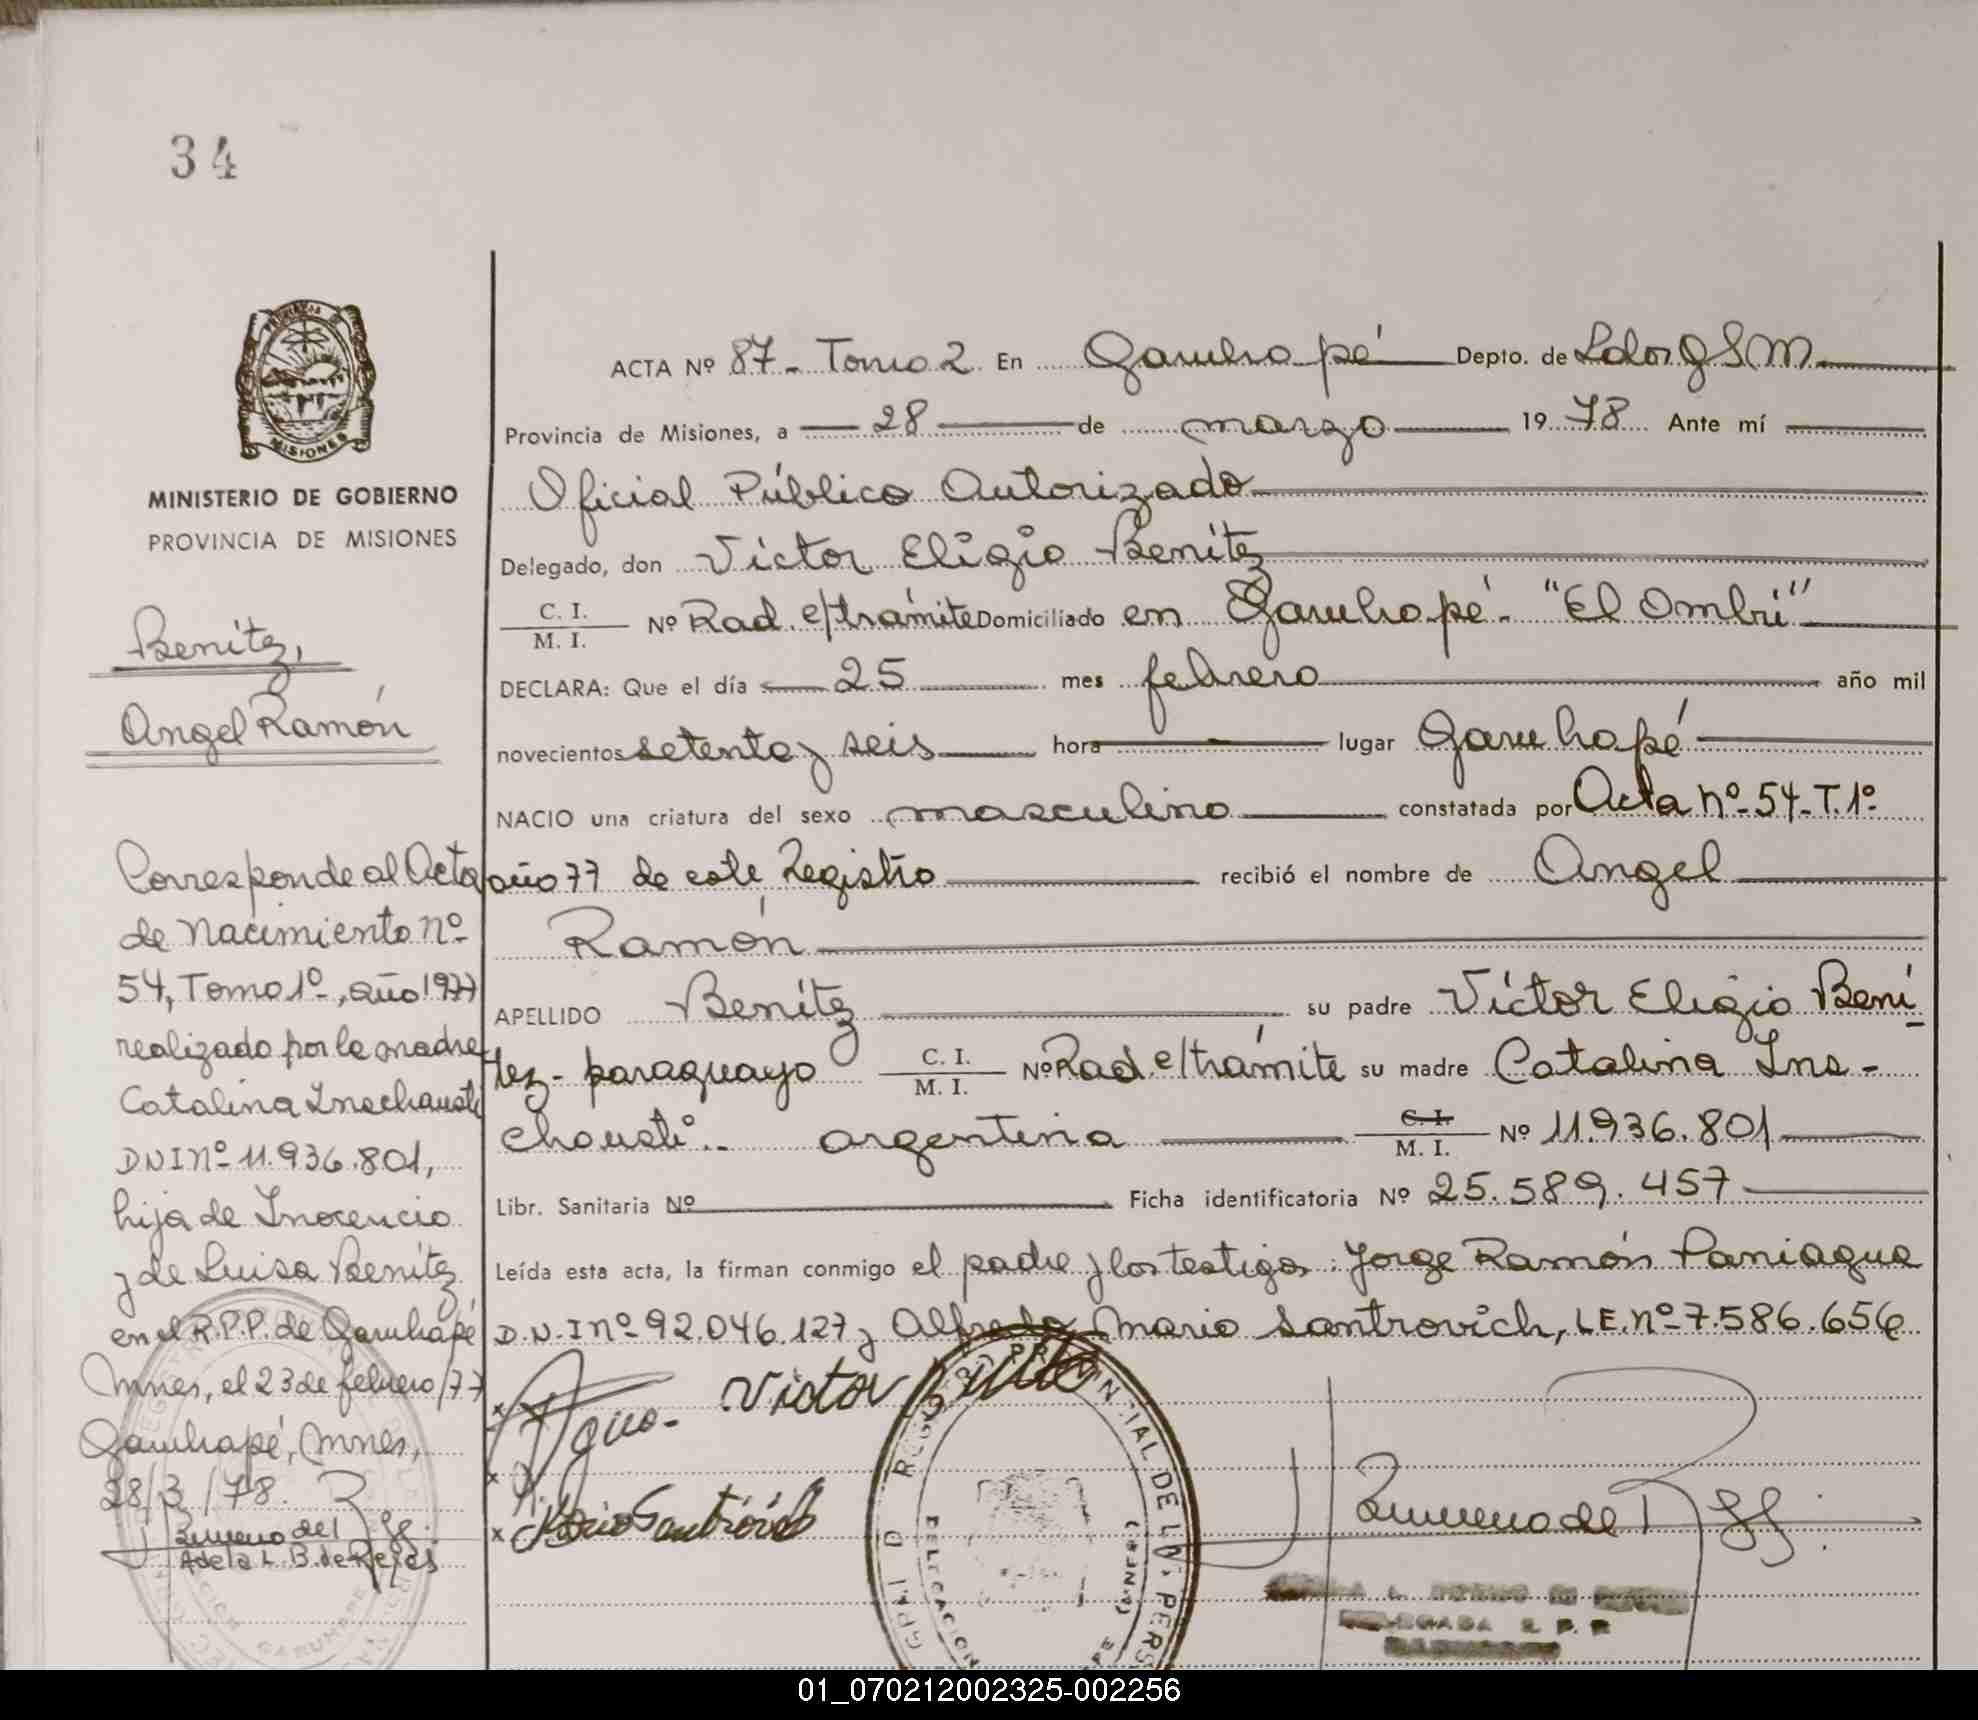 34
ACTA Nº 87 - Tomo 2 En Garuhapé Depto. de Ldor G S M
Provincia de Misiones, a 28 de marzo 1978 Ante mí
Oficial Público Autorizado
Delegado, don Víctor Eligio Benítez
C. I.
M. I.
Nº Rad. e/trámite Domiciliado en Garuhapé - "El Ombú"
DECLARA: Que el día 25 mes febrero año mil
novecientos setenta y seis hora lugar Garuhapé
NACIO una criatura del sexo masculino constatada por Acta nº 54 - T. 1º
año 77 de este Registro recibió el nombre de Angel
Ramón
APELLIDO Benítez su padre Víctor Eligio Bení
tez - paraguayo C. I. M. I. Nº Rad. e/trámite su madre Catalina Ins-
chausti - argentina C. I. M. I. Nº 11.936.801
Libr. Sanitaria Nº Ficha identificatoria Nº 25.589.457
Leída esta acta, la firman conmigo el padre y los testigos: Jorge Ramón Paniagua
D.N.I nº 92.046.127 y Alfredo Mario Santrovich, L.E. nº 7.586.656
Victor
Mario Santrovich
MISIONES
MINISTERIO DE GOBIERNO
PROVINCIA DE MISIONES
Benítez,
Angel Ramón
Corresponde al Acta
de Nacimiento nº
54, Tomo 1º, año 1977
realizado por la madre
Catalina Inschausti
DNI nº 11.936.801,
hija de Inocencio
y de Luisa Benítez
en el R.P.P. de Garuhapé
Mnes, el 23 de febrero/77
Garuhapé, Mnes,
28/3/78.
Adela L. B. de Rejas
REGISTRO PROVINCIAL DE LAS PERS
DELEGACION
01_070212002325-002256